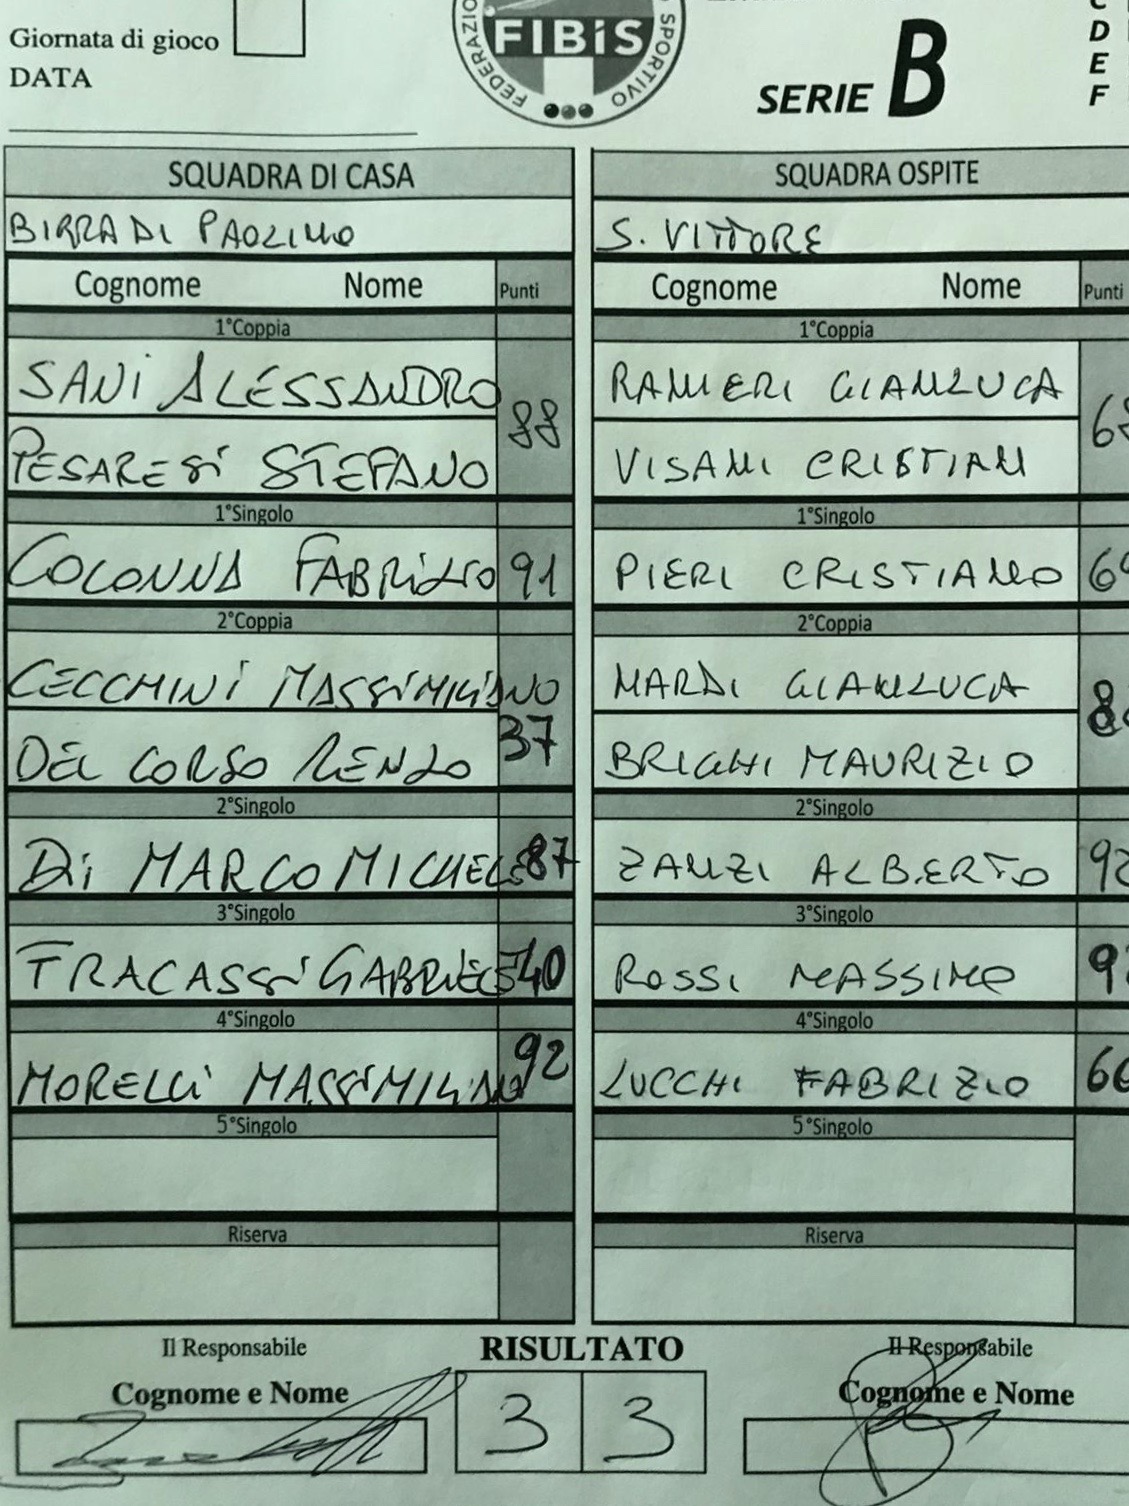 Giornata di gioco
DATA
FIBiS
FEDERAZIO
SPORTIVO
SERIE B
C
D
E
F
SQUADRA DI CASA
BIRRA DI PAOLINO
Cognome Nome Punti
1°Coppia
SANI ALESSANDRO
88
PESARESI STEFANO
1°Singolo
COLONNA FABRIZIO 91
2°Coppia
CECCHINI MASSIMILIANO
37
DEL CORSO RENZO
2°Singolo
DI MARCO MICHELE 87
3°Singolo
FRACASSI GABRIELE 40
4°Singolo
MORELLI MASSIMILIANO 92
5°Singolo
Riserva
SQUADRA OSPITE
S. VITTORE
Cognome Nome Punti
1°Coppia
RANIERI GIANLUCA
VISANI CRISTIAN
1°Singolo
PIERI CRISTIANO
2°Coppia
NARDI GIANLUCA
BRIGHI MAURIZIO
2°Singolo
ZANZI ALBERTO
3°Singolo
ROSSI MASSIMO
4°Singolo
LUCCHI FABRIZIO
5°Singolo
Riserva
Il Responsabile
Cognome e Nome
RISULTATO
3 3
Il Responsabile
Cognome e Nome